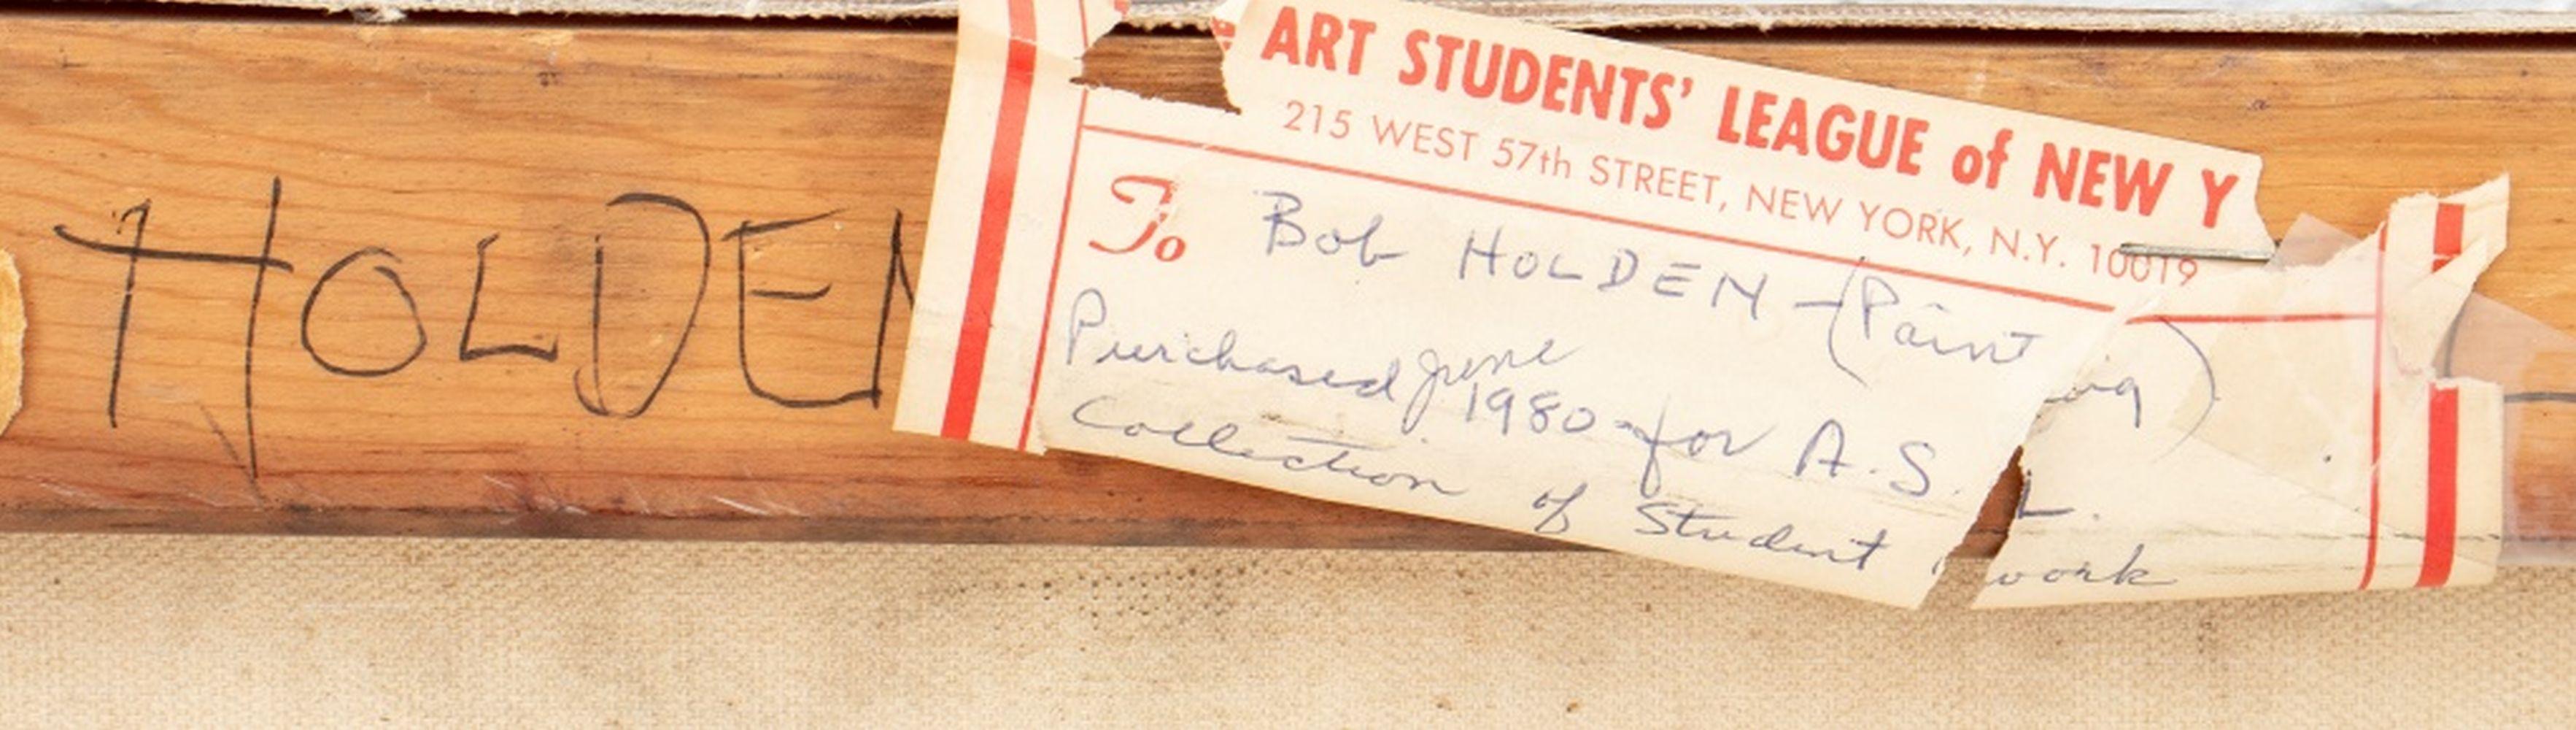 HOLDEN
ART STUDENTS' LEAGUE of NEW Y
215 WEST 57th STREET, NEW YORK, N.Y. 10019
To Bob HOLDEN - (Painting)
Purchased June
1980 - for A.S.L.
Collection of Student work